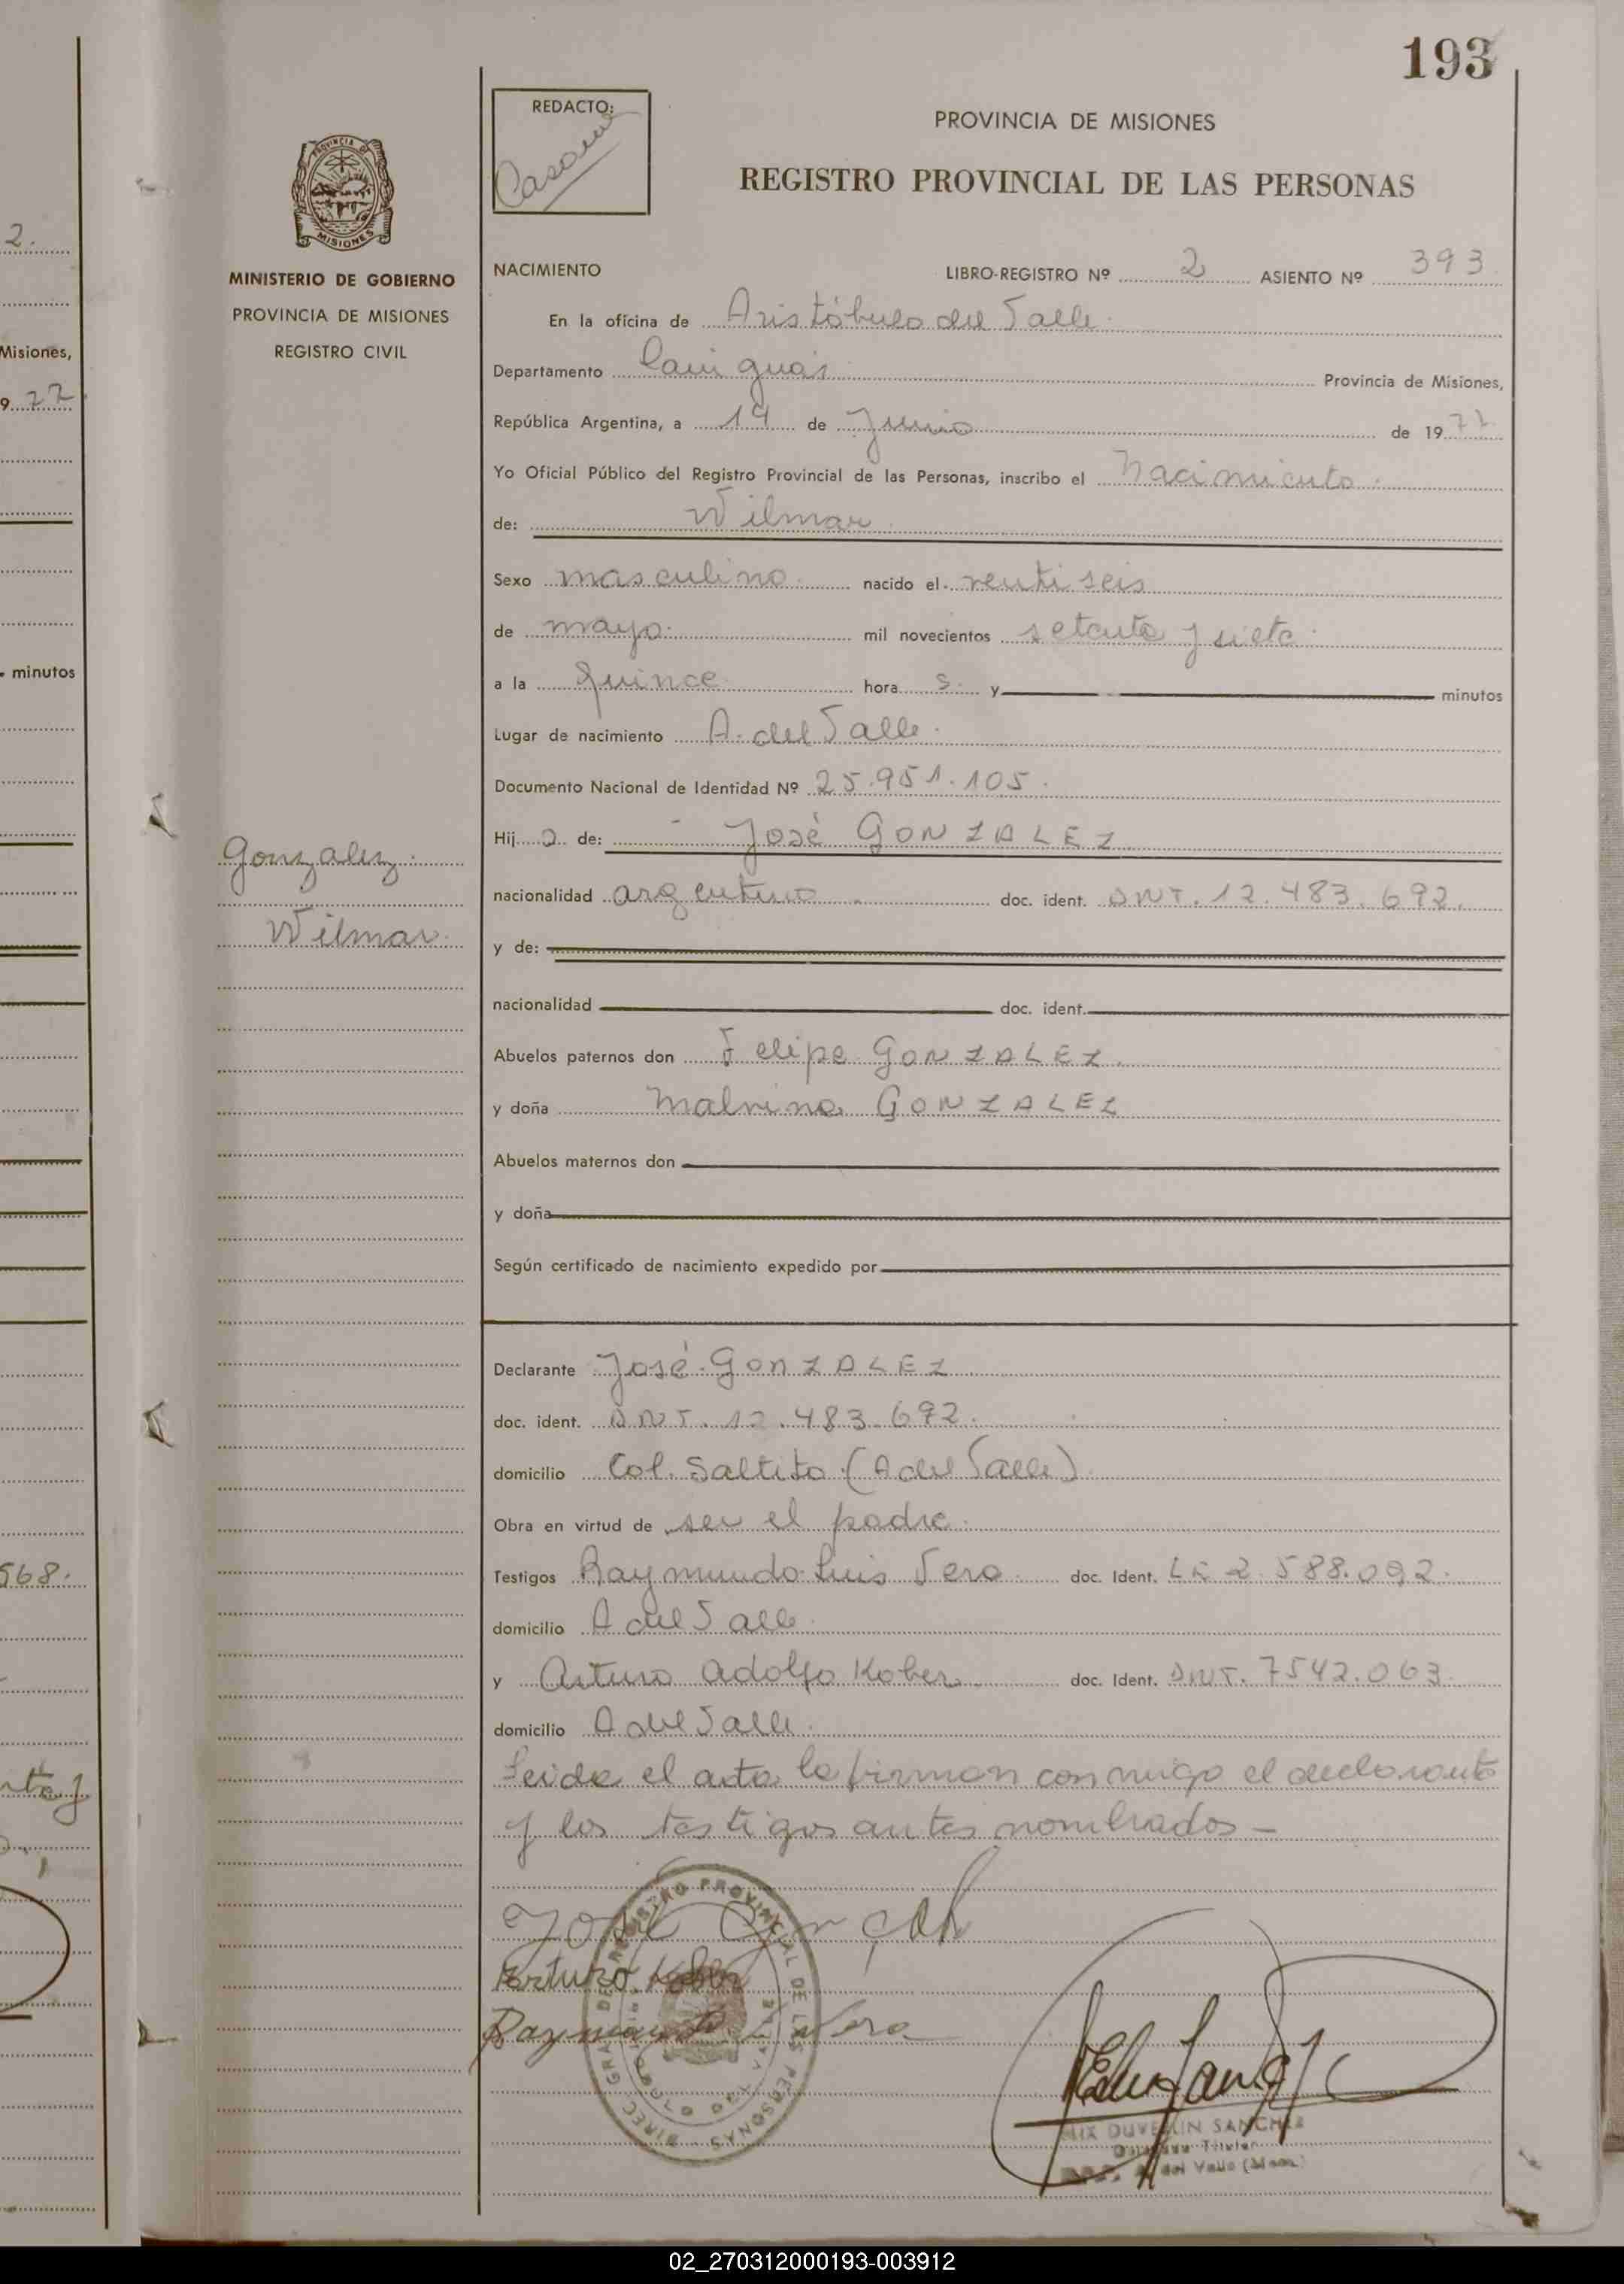 193
REDACTO:
PROVINCIA DE MISIONES
REGISTRO PROVINCIAL DE LAS PERSONAS
PROVINCIA DE
MISIONES
MINISTERIO DE GOBIERNO
PROVINCIA DE MISIONES
REGISTRO CIVIL
NACIMIENTO LIBRO-REGISTRO Nº 2 ASIENTO Nº 393
En la oficina de Aristóbulo del Valle.
Departamento Cainguás Provincia de Misiones,
República Argentina, a 14 de Junio de 1977
Yo Oficial Público del Registro Provincial de las Personas, inscribo el Nacimiento.
de: Wilmar
Sexo masculino. nacido el ventiseis
de mayo. mil novecientos setenta y siete.
a la quince hora s. y minutos
Lugar de nacimiento A. del Valle.
Documento Nacional de Identidad Nº 25.951.105.
Hij o de: José GONZALEZ
nacionalidad argentino. doc. ident. DNI. 12.483.692.
y de:
nacionalidad doc. ident.
Abuelos paternos don Felipe GONZALEZ.
y doña Malvina GONZALEZ
Abuelos maternos don
y doña
Según certificado de nacimiento expedido por
Gonzalez.
Wilmar.
Declarante José GONZALEZ
doc. ident. DNI. 12.483.692.
domicilio Col. Saltito (A del Valle).
Obra en virtud de ser el padre.
Testigos Raymundo Luis Vera doc. Ident. LE 2.588.092.
domicilio A del Valle.
y Arturo Adolfo Kober doc. Ident. DNI. 7542.063.
domicilio A del Valle.
Leida el acta la firman conmigo el declarante
y los testigos antes nombrados -
José
Arturo Kober
Raymundo L Vera
REGISTRO PROVINCIAL DE LAS PERSONAS
DUVERLIN SANCHEZ
Titular
A. del Valle (Mnes.)
2.
Misiones,
9 77
minutos
568.
02_270312000193-003912